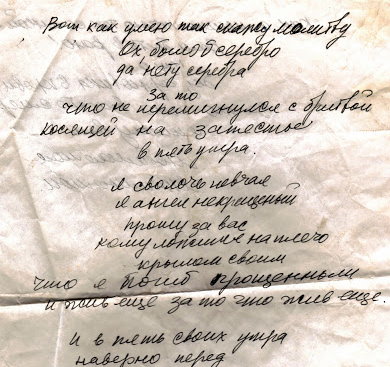 Вот как умею так скажу молитву
Ох, было б серебро
да нету серебра
За то
что не перемигнулся с бритвой
косящей на запястье
в пять утра.
я сволочь певчая
я ангел некрещеный
прошу за вас
кому на плечо
крылом своим
что я погиб прощенным
и жив еще за то что жив еще.
И в пять своих утра
наверно перед